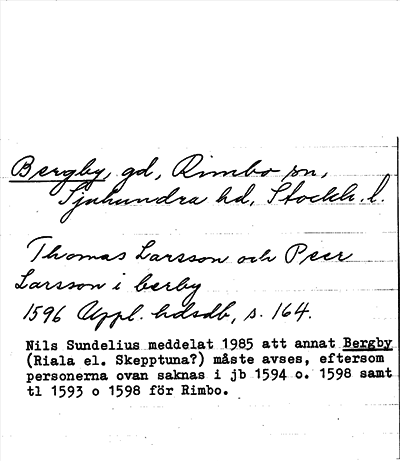 Bergby, gd, Rimbo sn,
Sjuhundra hd, Stockh. l.
Thomas Larsson och Peer
Larsson i berby
1596 Uppl. hdsdb, s. 164.
Nils Sundelius meddelat 1985 att annat Bergby
(Riala el. Skepptuna?) måste avses, eftersom
personerna ovan saknas i jb 1594 o. 1598 samt
tl 1593 o 1598 för Rimbo.